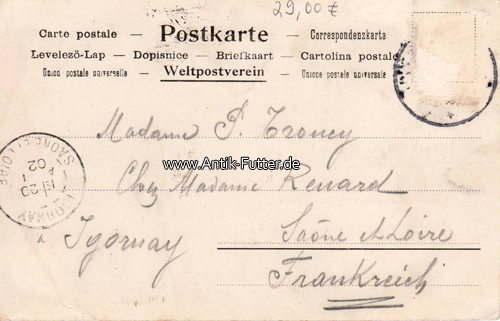 29,00 €
Carte postale — Postkarte — Correspondenzkarte
Levelező-Lap — Dopisnice — Briefkaart — Cartolina postale
Union postale universelle — Weltpostverein — Unione postale universale
Madame P. Troncy
www.Antik-Futter.de
Chez Madame Renard
à Igornay
Saône et Loire
Frankreich
SAONE ET LOIRE
02